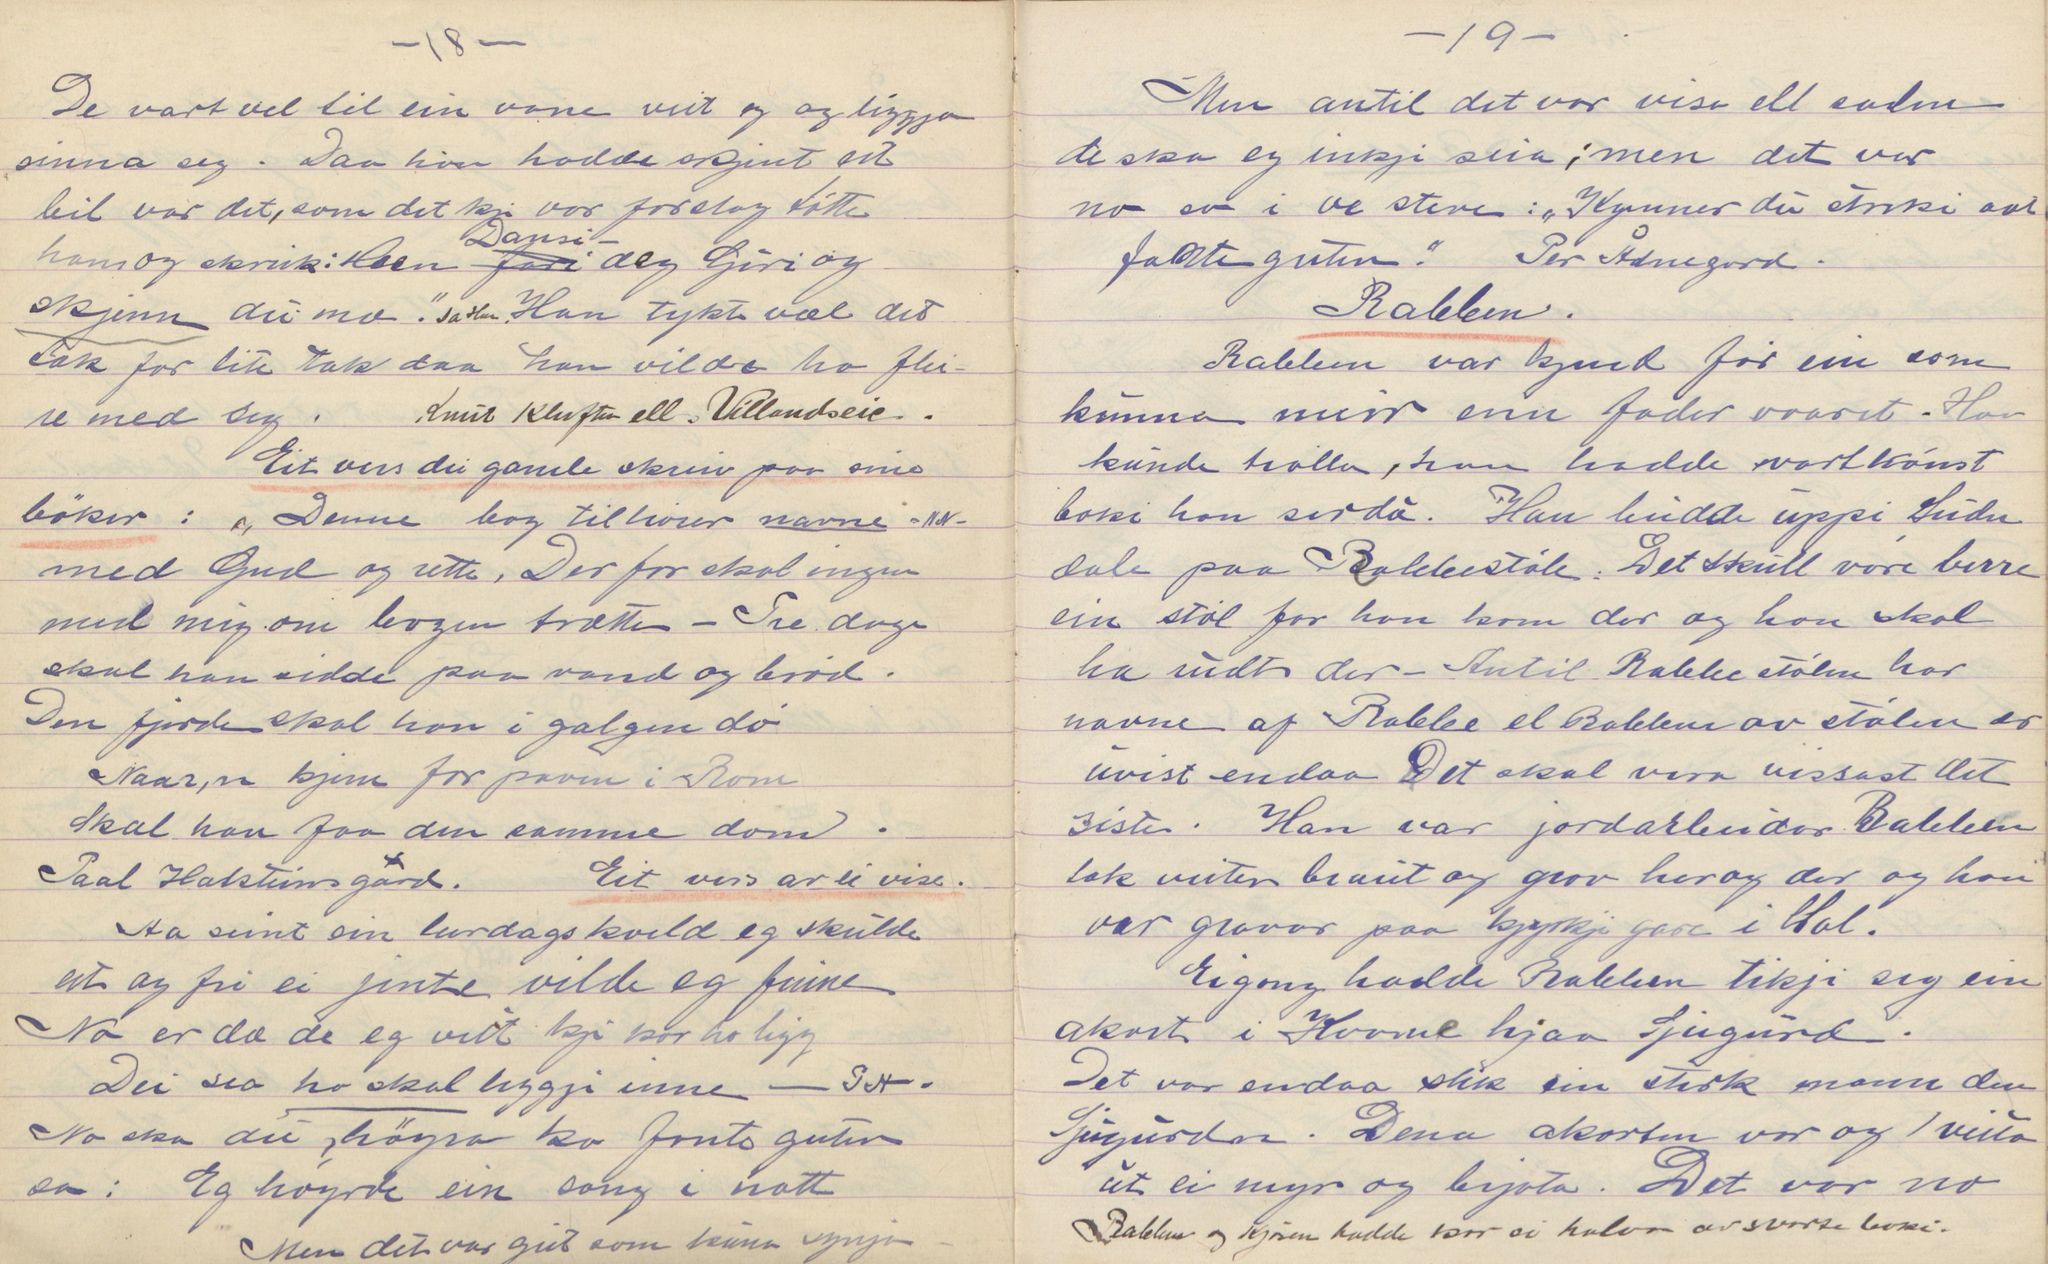 -18-
De vart vel til ein vane veit eg og liggja
sinna seg. Daa han hadde skjent eit
bil var det, som det kji var forslag. Lötte
han og skreik: Kom Dansi deg Guri og
skjenn du mæ." sa Han. Han tykte væl det
tok for lite tak daa han vilde ha flei-
re med seg. Knut Kluften ell. Villandseie.
Eit vers dei gamle skreiv paa sine
böker: „Denne bog tilhörer navne -NN-
med Gud og rette, Derfor skal ingen
med mig om bogen trætte - Tre dage
skal han sidde paa vand og bröd.
Den fjerde skal han i galgen dö
Naar,n kjem for paven i Rom
Skal han faa den samme dom.
Paal Haksteinsgård. Eit vers av ei vise.
Aa seint ein laurdagskveld eg skulde
ut og fri ei jente vilde eg finne
No er dæ de eg veit kji kor ho ligg
Dei sea ho skal liggji inne - PH.
No ska du höyra ko fante guten
sa: Eg höyrde ein song i natt
Men det var gut som kuna synja
-19-
Men antil det var visa ell salme
de ska eg inkji seia; men det var
no so i ve steve: „Kynner du ströki aat
fakte guten." Per Ådnegard.
Rabben.
Rabben var kjend for ein som
kunna meir enn fader vaaret. Han
kunde trolla, han hadde svartkonst
boki han serdu. Han budde uppi Sudn
dale paa Rabbestöle. Det skull vöre berre
ein stöl for han kom der og han skal
ha rudt der - Antil Rabbestölen har
navne af Rabbe el Rabben av stölen er
uvist endaa Det skal vera vissast det
siste. Han var jordarbeidar Rabben
tok veiter braut og grov her og der og han
var gravar paa kjyrkjigare i Hol.
Eigong hadde Rabben tikji seg ein
akort i Kvarme hjaa Sjugurd.
Det var endaa slik ein sterk mann den
Sjugurdn. Dena akorten var og veita
ut ei myr og brjota. Det var no
Rabben og Kjösen hadde kor si halva av svarte boki.